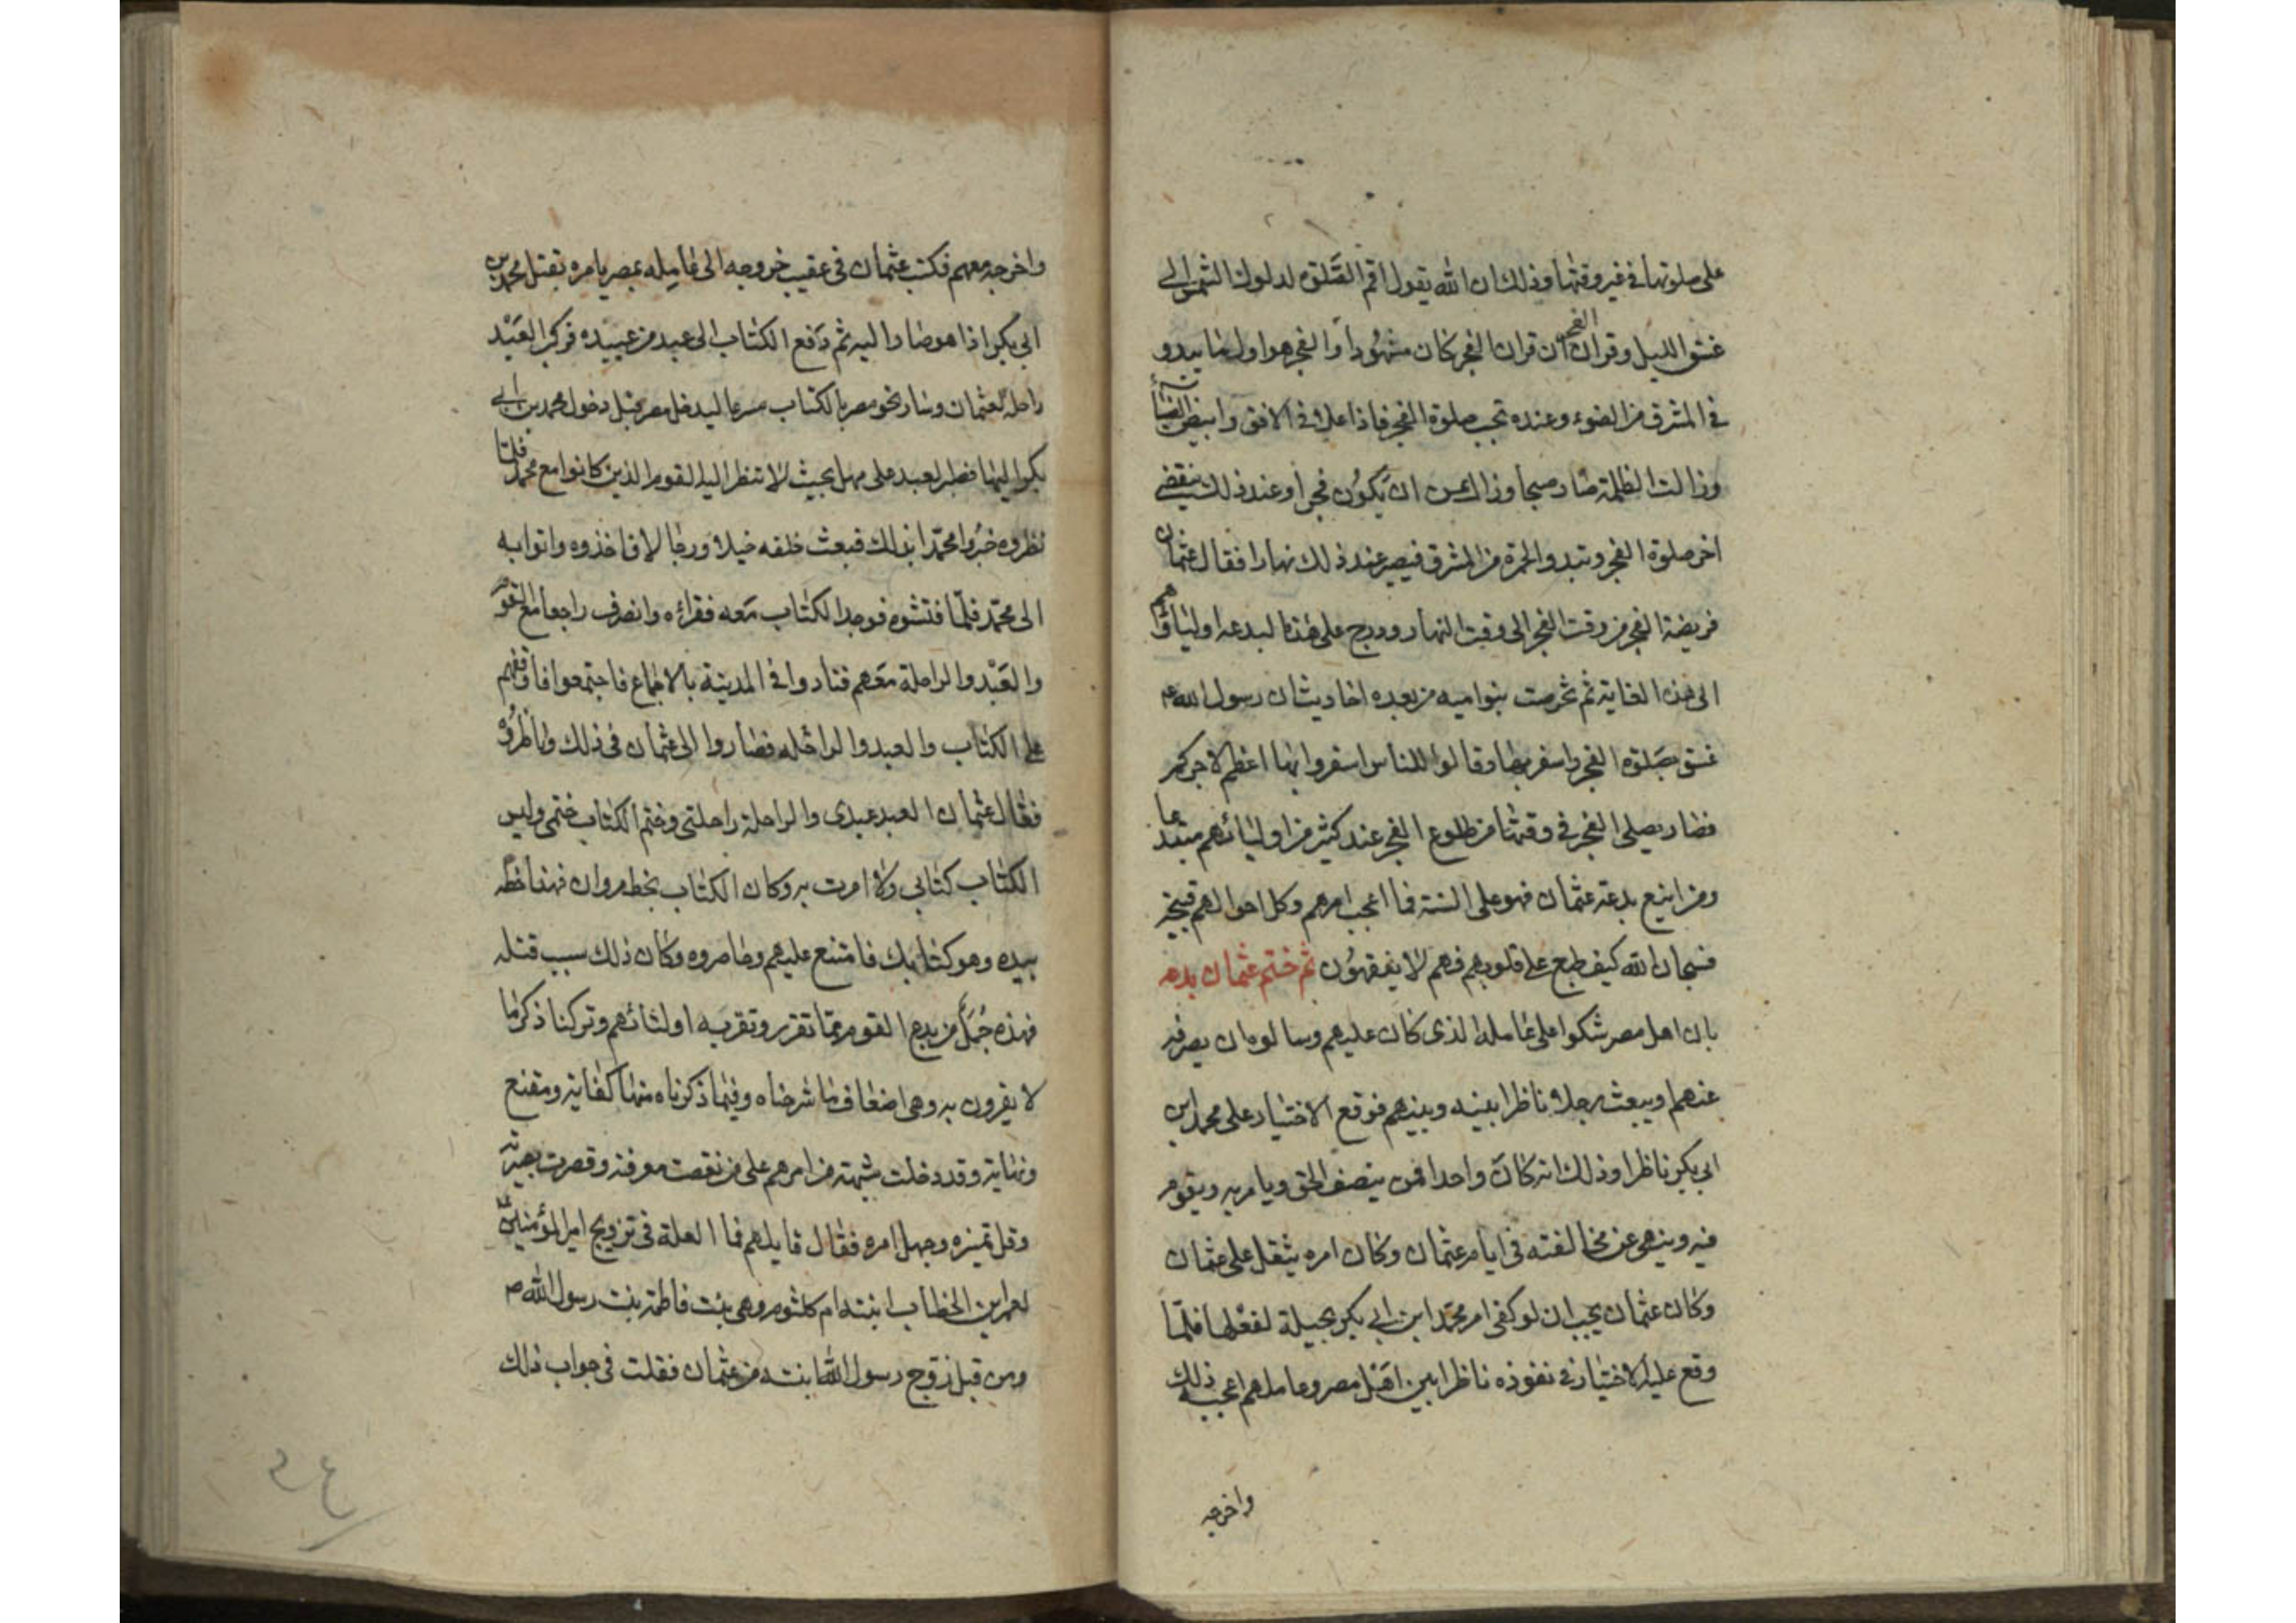 على صلوتها في غير وقتها وذلك ان الله يقول اقم الصلوة لدلوك الشمس الى
غسق الليل وقران الفجر ان قران الفجر كان مشهودا والفجر هو اول ما يبدو
في المشرق من الضوء وعنده تجب صلوة الفجر فاذا علا في الافق وابيض الضياء
وزالت الظلمة صار صبحا وزال عن ان يكون فجرا وعند ذلك ينقضي
اخر صلوة الفجر وتبدو الحمرة من المشرق فيصير عند ذلك نهارا فقال عثمان
فريضة الفجر من وقت الفجر الى وقت النهار ودرج على هذه البدعة اولياؤهم
الى هذه الغاية ثم تخرصت بنو اميه من بعده احاديث ان رسول الله ص
غسق بصلوة الفجر واسفر بها وقالوا للناس اسفروا بها اعظم لاجركم
فصار يصلي الفجر في وقتها من طلوع الفجر عند كثير من اوليائهم مبتدعا
ومن اتبع بدعة عثمان فهو على السنة فما اعجب امرهم وكل احوالهم قبيحة
فسبحان الله كيف طبع على قلوبهم فهم لا يفقهون ثم ختم عثمان بدعه
بان اهل مصر شكوا على عامله الذي كان عليهم وسالوه ان يصرفه
عنهم ويبعث رجلا ناظرا بينه وبينهم فوقع الاختيار على محمد ابن
ابي بكر ناظرا وذلك انه كان واحدا فمن ينصف الحق ويامر به ويقوم
فيه وينهى عن مخالفته في ايام عثمان وكان امره يثقل على عثمان
وكان عثمان يحب ان لو كفى امر محمد ابن ابي بكر بحيلة لفعلها فلما
وقع عليه الاختيار في نفوذه ناظرا بين اهل مصر وعاملهم اعجبه ذلك
واخرجه
واخرجه معهم فكتب عثمان في عقيب خروجه الى عامله بمصر يامره بقتل محمد بن
ابي بكر اذا هو صار اليه ثم دفع الكتاب الى عبد من عبيده فركب العبد
راحلة لعثمان وسار نحو مصر بالكتاب مسرعا ليدخل مصر قبل دخول محمد بن ابي
بكر اليها فطر العبد على مهل بحيث لا تنظر اليه القوم الذين كانوا مع محمد فلما
نظروه خبروا محمدا بذلك فبعث خلفه خيلا ورجالا فاخذوه واتوا به
الى محمد فلما فتشوه فوجد الكتاب معه فقراءه وانصرف راجعا مع القوم
والعبد والراحلة معهم فنادوا في المدينة بالاجماع فاجتمعوا فاوقفهم
على الكتاب والعبد والراحله فصاروا الى عثمان في ذلك وناظروه
فقال عثمان العبد عبدي والراحلة راحلتي وختم الكتاب ختمي وليس
الكتاب كتابي ولا امرت به وكان الكتاب بخط مروان فهذا خطه
بيده وهو كتابك فامتنع عليهم وحاصروه وكان ذلك سبب قتله
فهذه جمل من بدع القوم مما تقرر وتقربه اوليائهم وتركنا ذكر ما
لا يقرون به وهي اضعاف ما شرحناه وفيما ذكرناه منها كفاية ومقنع
ونهاية وقد دخلت شبهته من امرهم على من نقصت معرفته وقصرت بصيرته
وقل تميزه وجهل امره فقال قايلهم فما العلة في تزويج امير المؤمنين ع
لعمر ابن الخطاب ابنته ام كلثوم وهي بنت فاطمة بنت رسول الله ص
ومن قبل زوج رسول الله ابنته من عثمان فقلت في جواب ذلك